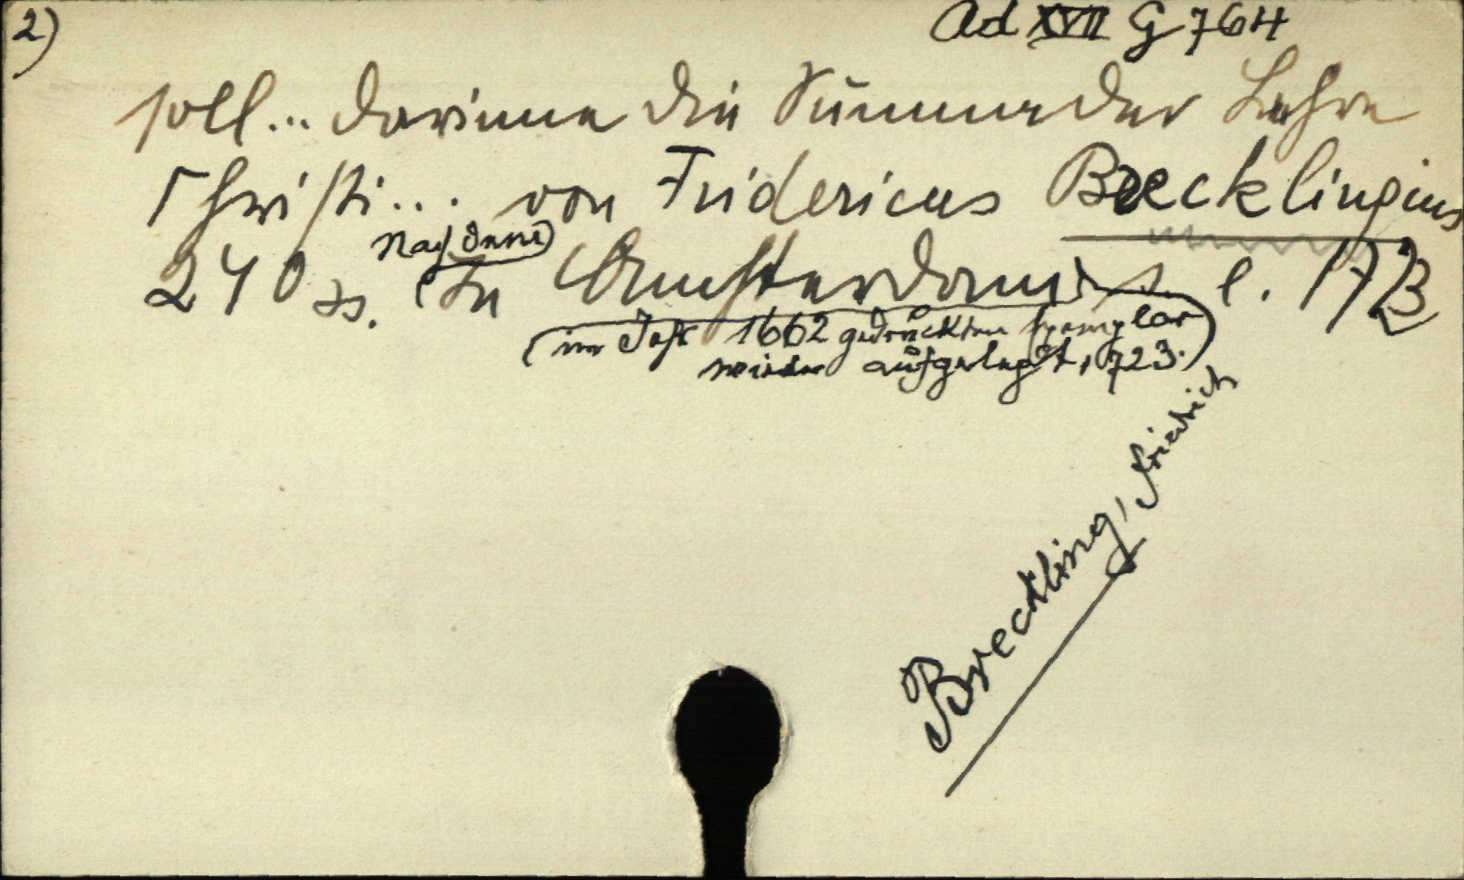 2)
Ad XVII G 764
soll... darinne die Summa der Lehre
Christi... von Fridericus Brecklingius
Nach dem
240 ss. (In Amsterdam s. l. 1723
im Jahr 1662 gedruckten Exemplar
wieder aufgelegt, 1723.)
Breckling, Friedrich